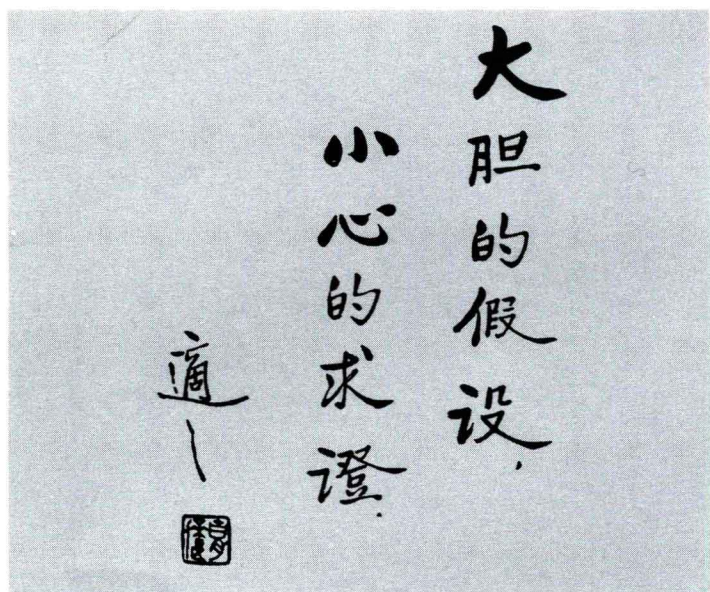 大胆的假设，
小心的求證.
適之